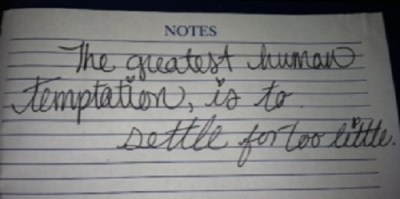 NOTES
The greatest human
temptation, is to
settle for too little.